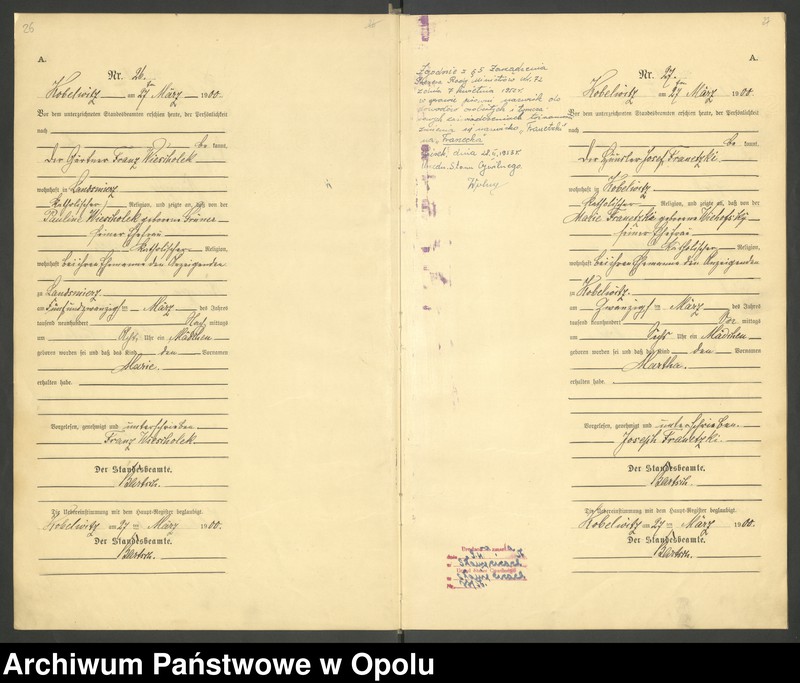 26
A.
Nr. 26.
Kobelwitz am 27ten März 1900.
Vor dem unterzeichneten Standesbeamten erschien heute, der Persönlichkeit
nach
be kannt,
der Gärtner Franz Wiescholek
wohnhaft in Landsmierz
katholischer Religion, und zeigte an, daß von der
Pauline Wiescholek geborene
seiner Ehefrau
katholischer Religion,
wohnhaft bei ihrem Ehemanne den Anzeigenden
zu Landsmierz
am fünfundzwanzigsten März des Jahres
tausend neunhundert Nach mittags
um Acht Uhr ein Mädchen
geboren worden sei und daß das Kind den Vornamen
Marie
erhalten habe.
Vorgelesen, genehmigt und unterschrieben
Franz Wiescholek
Der Standesbeamte.
Bartsch.
Die Uebereinstimmung mit dem Haupt-Register beglaubigt.
Kobelwitz am 27ten März 1900.
Der Standesbeamte.
Bartsch.
Zgodnie z § 5 Zarządzenia
Prezesa Rady Ministrów Nr. 72
z dnia 7 kwietnia 1952 r.
w sprawie
dowodów osobistych i
zaświadczeniach
zmienia się nazwisko "Franetzki"
na "Franecka"
dnia
Urzędn. Stanu Cywilnego
27
A.
Nr. 27.
Kobelwitz am 27ten März 1900.
Vor dem unterzeichneten Standesbeamten erschien heute, der Persönlichkeit
nach
be kannt,
der Häusler Josef Franetzki
wohnhaft in Kobelwitz
katholischer Religion, und zeigte an, daß von der
Marie Franetzki geborene
seiner Ehefrau
katholischer Religion,
wohnhaft bei ihrem Ehemanne den Anzeigenden
zu Kobelwitz
am zwanzigsten März des Jahres
tausend neunhundert Vor mittags
um Sechs Uhr ein Mädchen
geboren worden sei und daß das Kind den Vornamen
Martha
erhalten habe.
Vorgelesen, genehmigt und unterschrieben.
Joseph Franetzki.
Der Standesbeamte.
Bartsch.
Die Uebereinstimmung mit dem Haupt-Register beglaubigt.
Kobelwitz am 27ten März 1900.
Der Standesbeamte.
Bartsch.
Archiwum Państwowe w Opolu